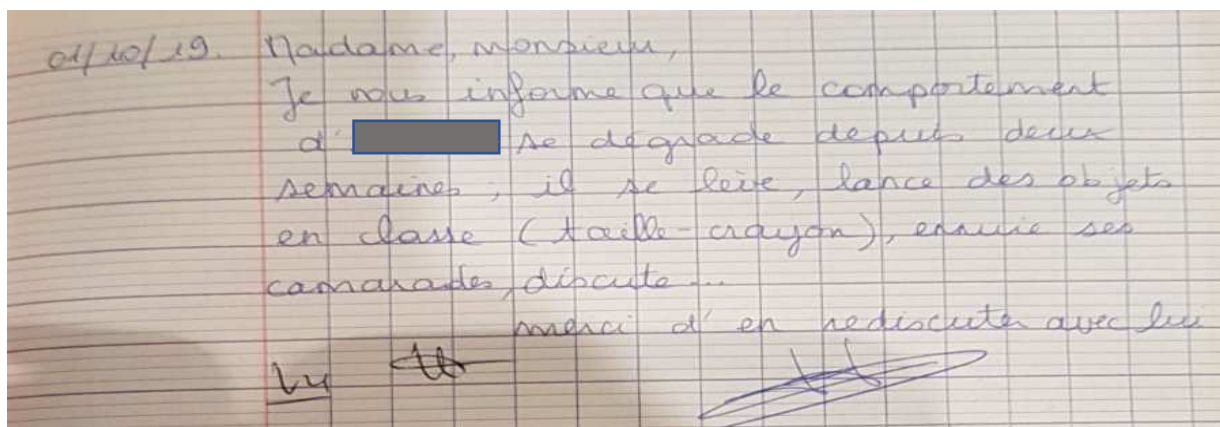 01/10/19. Madame, Monsieur,
Je vous informe que le comportement
d' se dégrade depuis deux
semaines ; il se lève, lance des objets
en classe (taille-crayon), ennuie ses
camarades, discute...
merci d'en rediscuter avec lui
Vu